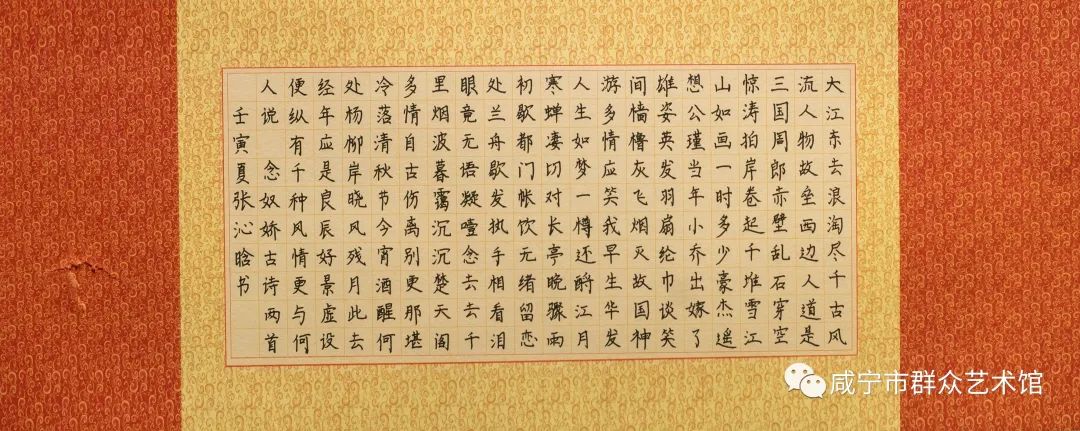 大江东去浪淘尽千古风
流人物故垒西边人道是
三国周郎赤壁乱石穿空
惊涛拍岸卷起千堆雪江
山如画一时多少豪杰遥
想公瑾当年小乔出嫁了
雄姿英发羽扇纶巾谈笑
间樯橹灰飞烟灭故国神
游多情应笑我早生华发
人生如梦一樽还酹江月
寒蝉凄切对长亭晚骤雨
初歇都门帐饮无绪留恋
处兰舟歇发执手相看泪
眼竟无语凝噎念去去千
里烟波暮霭沉沉楚天阔
多情自古伤离别更那堪
冷落清秋节今宵酒醒何
处杨柳岸晓风残月此去
经年应是良辰好景虚设
便纵有千种风情更与何
人说 念奴娇古诗两首
壬寅夏张沁晗书
咸宁市群众艺术馆